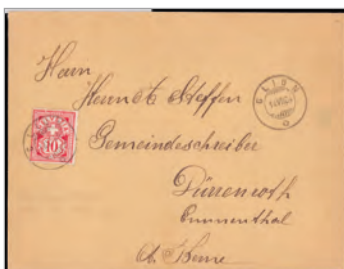 Herrn
Herrn A Steffen
Gemeindeschreiber
Dürrenroth
Emmenthal
Ct. Berne
HELVETIA
10
GLION